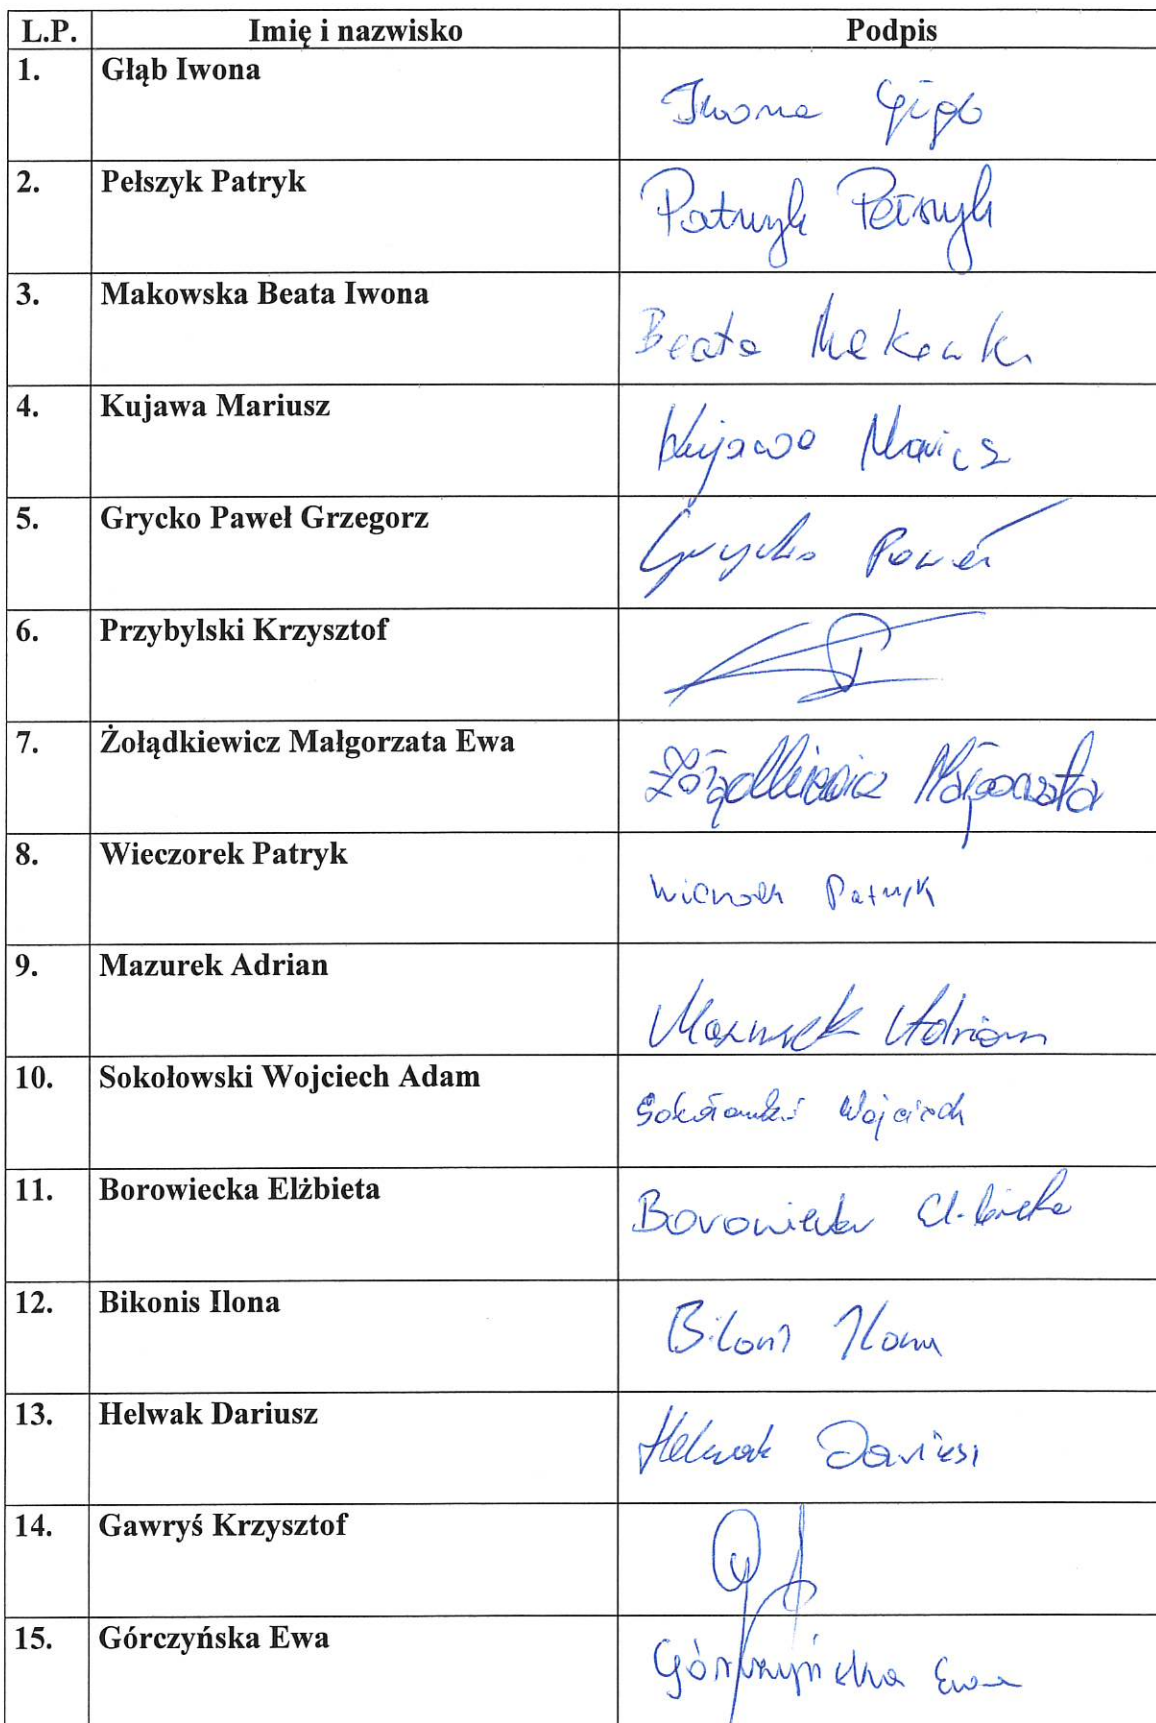 L.P. Imię i nazwisko Podpis
1. Głąb Iwona Iwona Głąb
2. Pełszyk Patryk Patryk Pełszyk
3. Makowska Beata Iwona Beata Makowska
4. Kujawa Mariusz Kujawa Mariusz
5. Grycko Paweł Grzegorz Grycko Paweł
6. Przybylski Krzysztof
7. Żołądkiewicz Małgorzata Ewa Żołądkiewicz Małgorzata
8. Wieczorek Patryk Wieczorek Patryk
9. Mazurek Adrian Mazurek Adrian
10. Sokołowski Wojciech Adam Sokołowski Wojciech
11. Borowiecka Elżbieta Borowiecka Elżbieta
12. Bikonis Ilona Bikonis Ilona
13. Helwak Dariusz Helwak Dariusz
14. Gawryś Krzysztof
15. Górczyńska Ewa Górczyńska Ewa